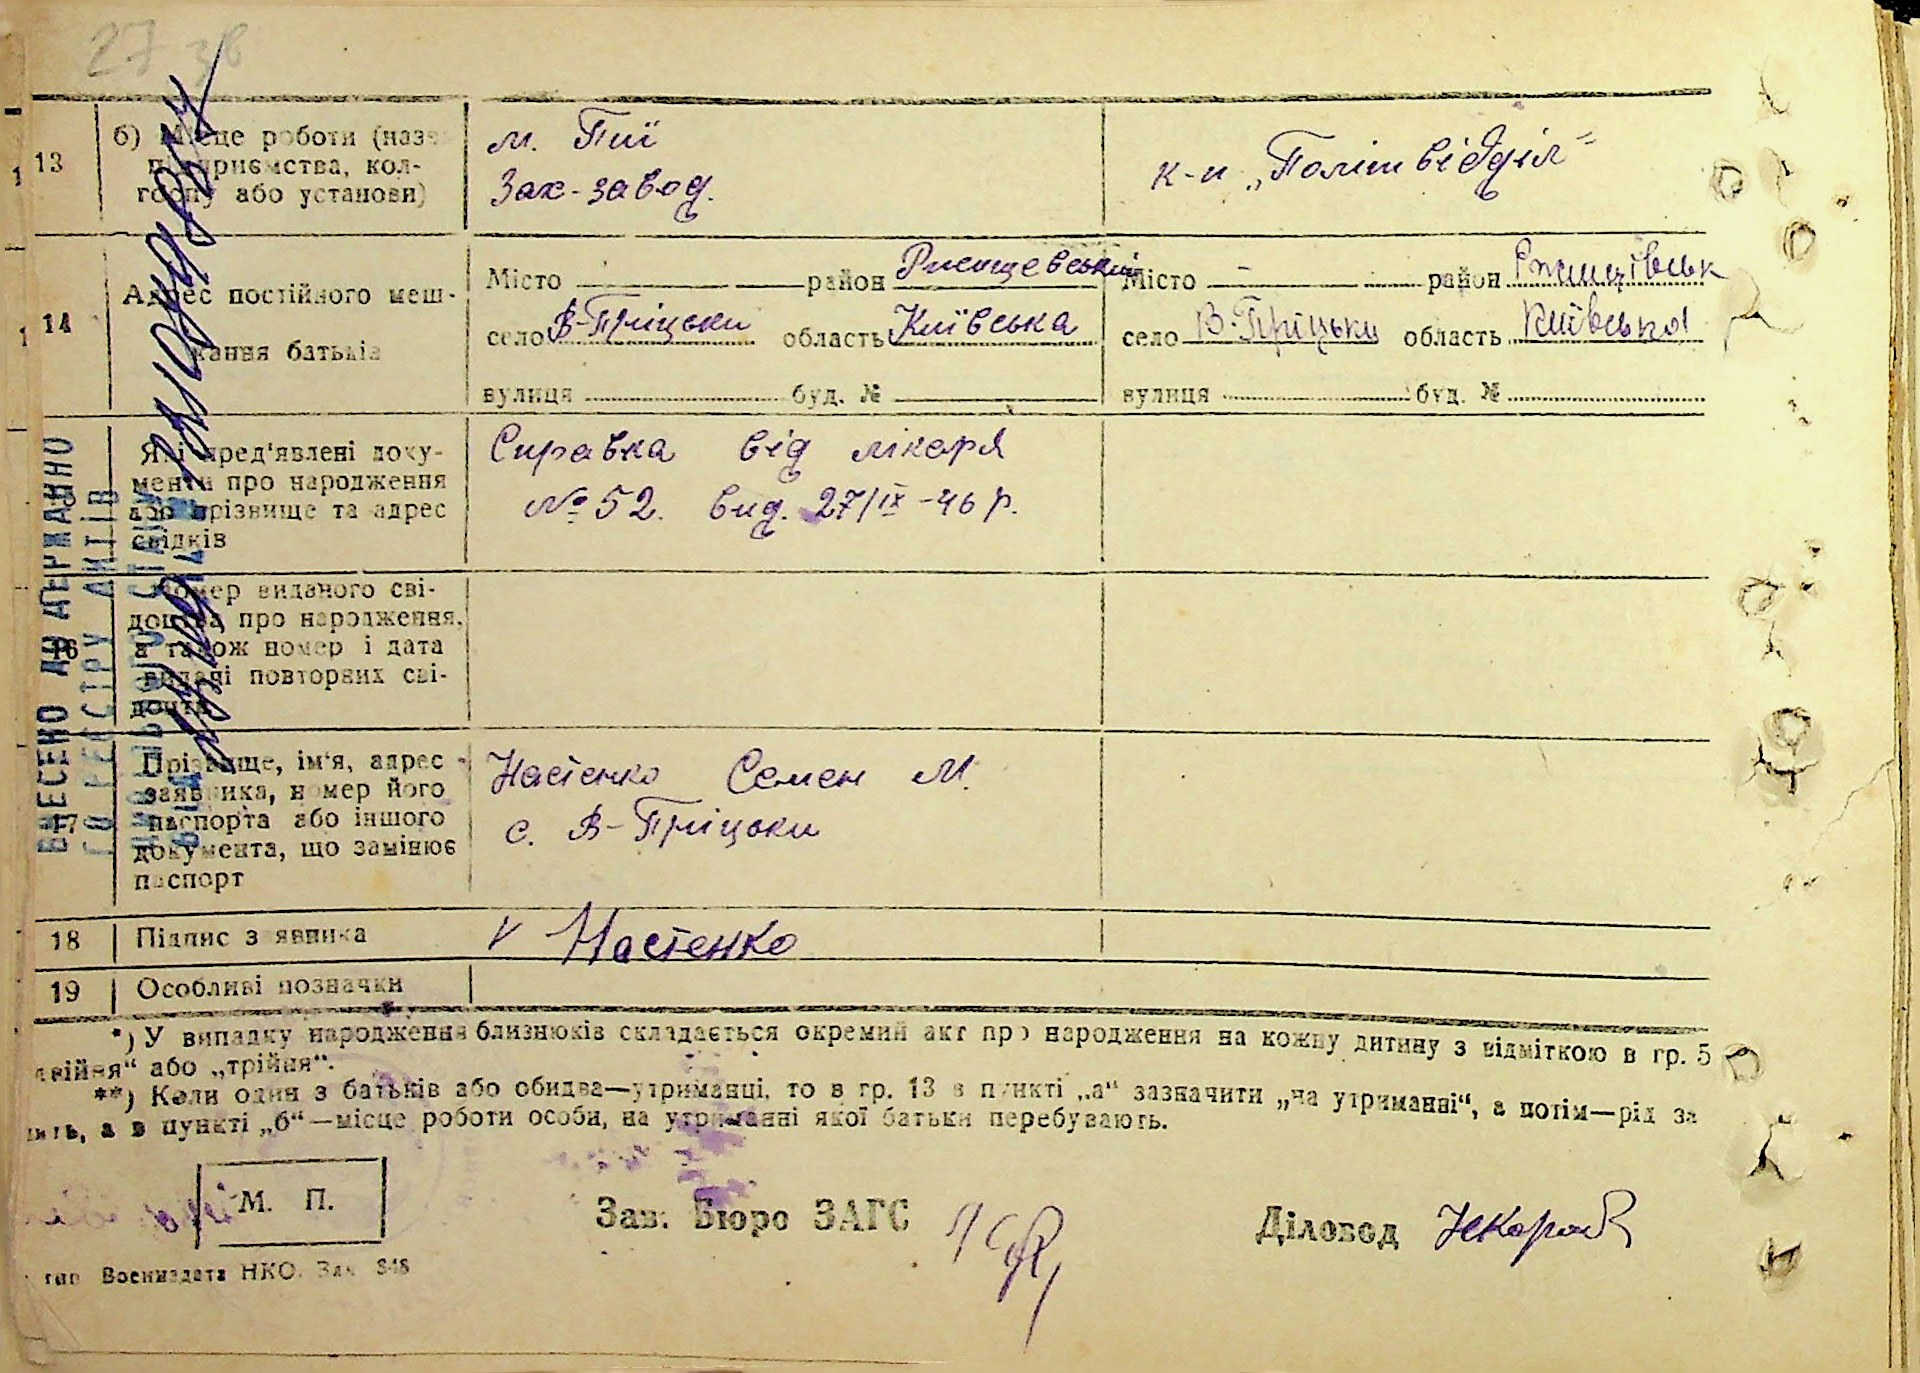 27 зв
13
б) Місце роботи (назва
підприємства, кол-
госпу або установи)
м. Пиї
Зах-завод.
к-п „Політвідділ"
14
Адрес постійного меш-
кання батьків
Місто район Ржищевський
село В-Пріцьки область Київська
вулиця буд. №
Місто район Ржищівськ
село В-Пріцьки область Київська
вулиця буд. №
Які пред'явлені доку-
менти про народження
або прізвище та адрес
свідків
Справка від лікаря
№ 52. вид. 27/IX-46 р.
16
Номер виданого сві-
доцтва про народження,
а також номер і дата
видачі повторних сві-
доцтв
17
Прізвище, ім'я, адрес
заявника, номер його
паспорта або іншого
документа, що замінює
паспорт
Настенко Семен М.
с. В-Пріцьки
18
Підпис заявника
v Настенко
19
Особливі позначки
ВНЕСЕНО ДО ДЕРЖАВНО
ГО РЕЄСТРУ АКТІВ
ЦИВІЛЬНОГО СТАНУ
*) У випадку народження близнюків складається окремий акт про народження на кожну дитину з відміткою в гр. 5
двійня" або „трійня".
**) Коли один з батьків або обидва—утриманці, то в гр. 13 в пункті „а" зазначити „на утриманні", а потім—рід за
нять, а в пункті „б"—місце роботи особи, на утриманні якої батьки перебувають.
М. П.
Зав. Бюро ЗАГС
Діловод
тип Воениздата НКО. Зак 348